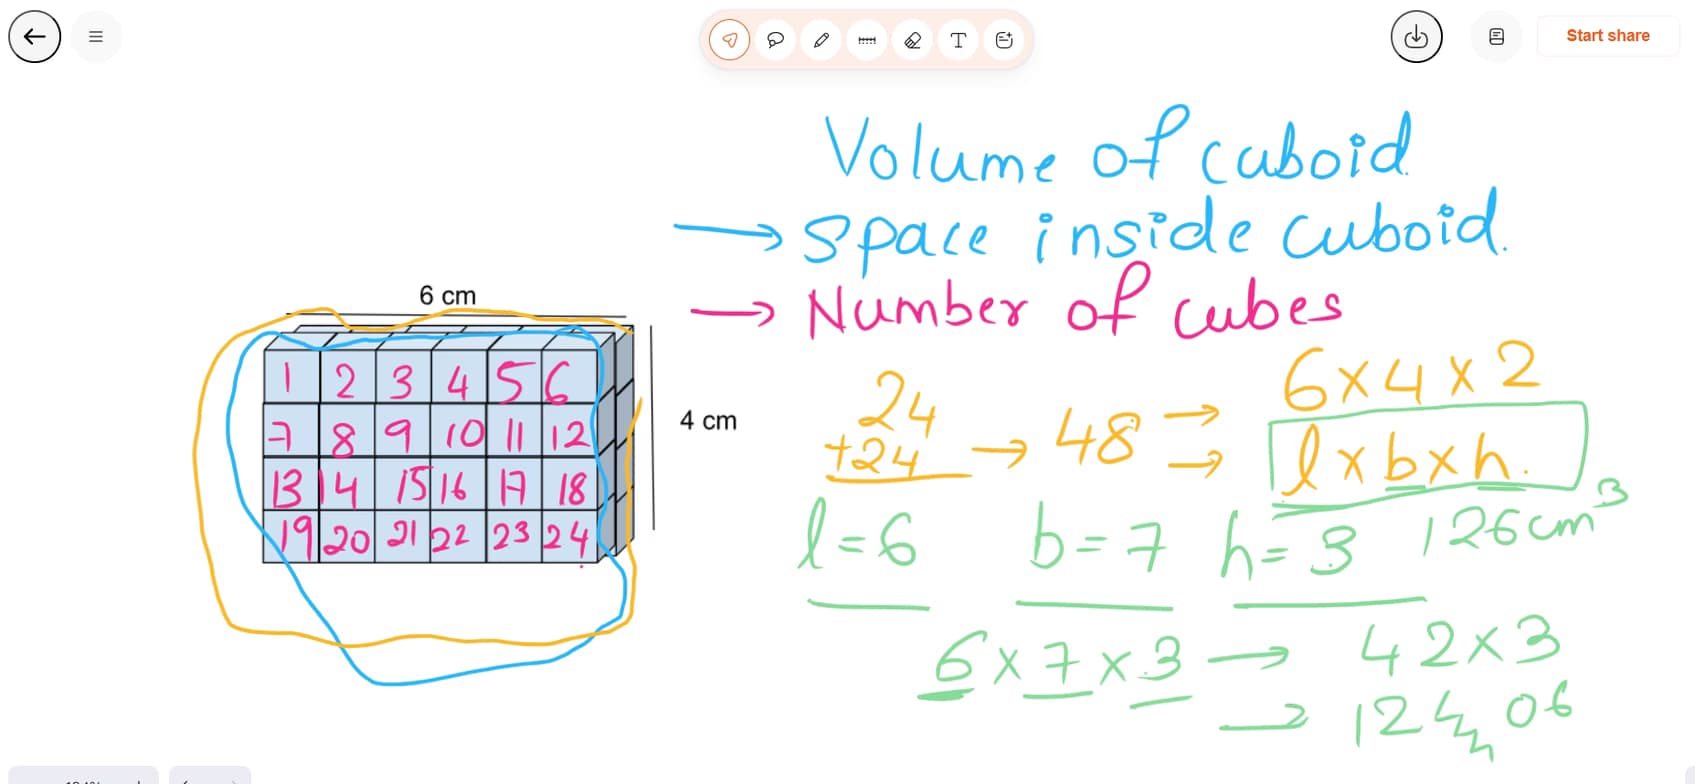 Start share
Volume of cuboid
→ space inside cuboid.
→ Number of cubes
6 cm
4 cm
1 2 3 4 5 6
7 8 9 10 11 12
13 14 15 16 17 18
19 20 21 22 23 24
24
+24 → 48 → 6×4×2
→ l×b×h.
l=6 b=7 h=3 126cm³
6×7×3 → 42×3
→ 124 06